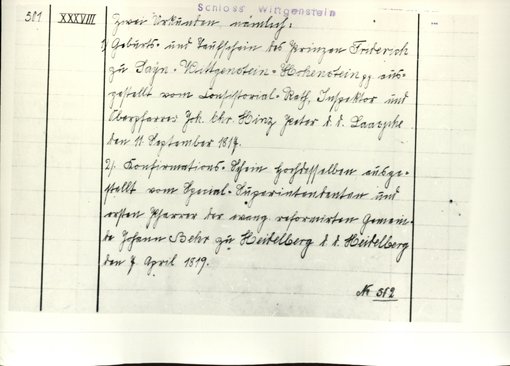 Schloss Wittgenstein
581 XXXVIII Zwei Urkunden, nämlich:
1) Geburts- und Taufschein des Prinzen Friderich
zu Sayn-Wittgenstein-Hohenstein pp aus-
gestellt vom Consistorial-Rath, Inspektor und
Oberpfarrer Joh. Chr. Hinz Peter d. d. Laasphe
den 11 September 1817.
2). Konfirmations-Schein hochdesselben ausge-
stellt vom Special-Superintendenten und
ersten Pfarrer der evang reformirten Gemein-
de Johann Behr zu Heidelberg d. d. Heidelberg
den 7 April 1819.
№ 582